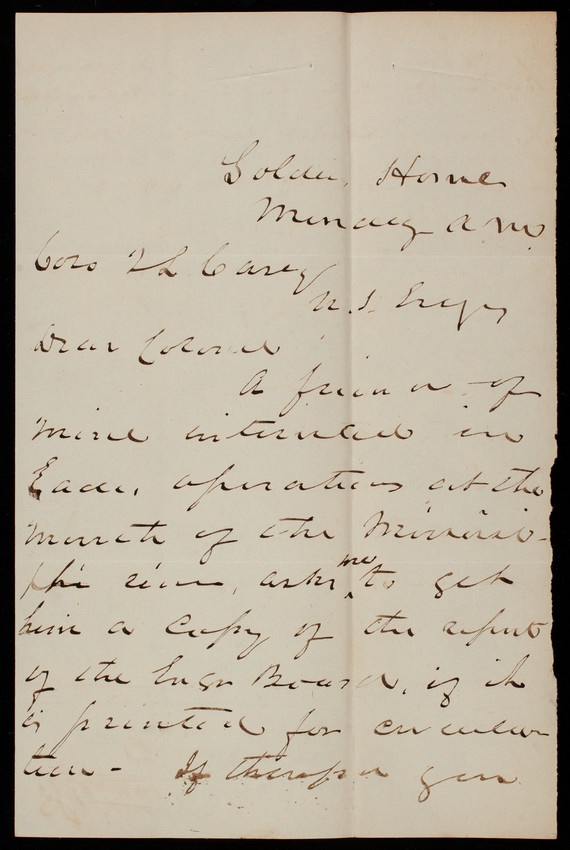 Soldier's Home
Monday A.M.
Col T L Casey
U.S. Engrs
Dear Colonel
A friend of
mine interested in
Eads' operations at the
mouth of the Mississip-
phi river, asks me to get
him a copy of the report
of the Engr Board, if it
is printed for circula-
tion - If therefor you